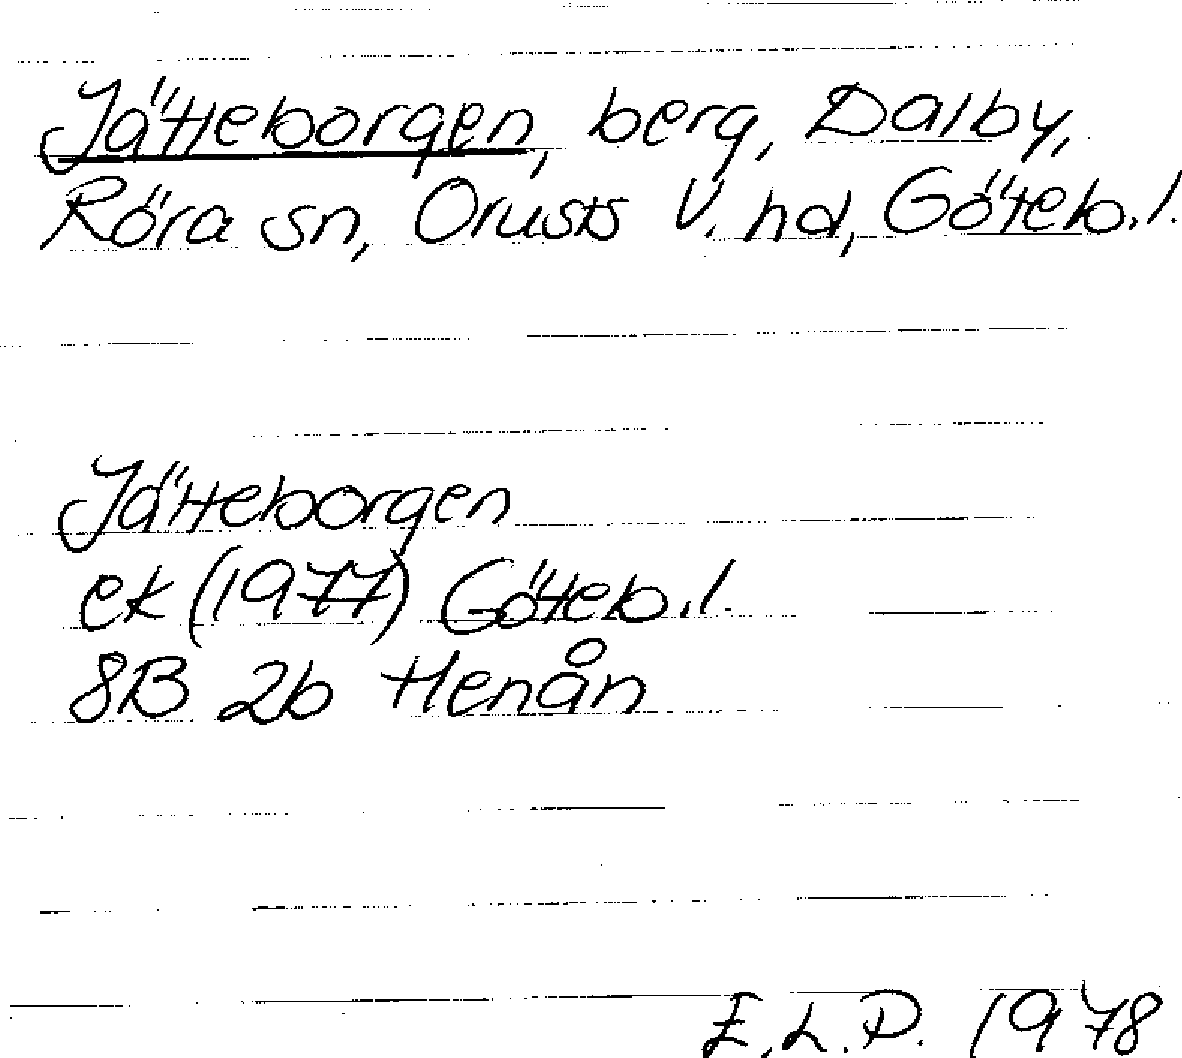 Jätteborgen, berg, Dalby,
Röra sn, Orusts V. hd, Göteb.l.
Jätteborgen
ek (1977) Göteb.l.
8B 2b Henån
E.L.P. 1978